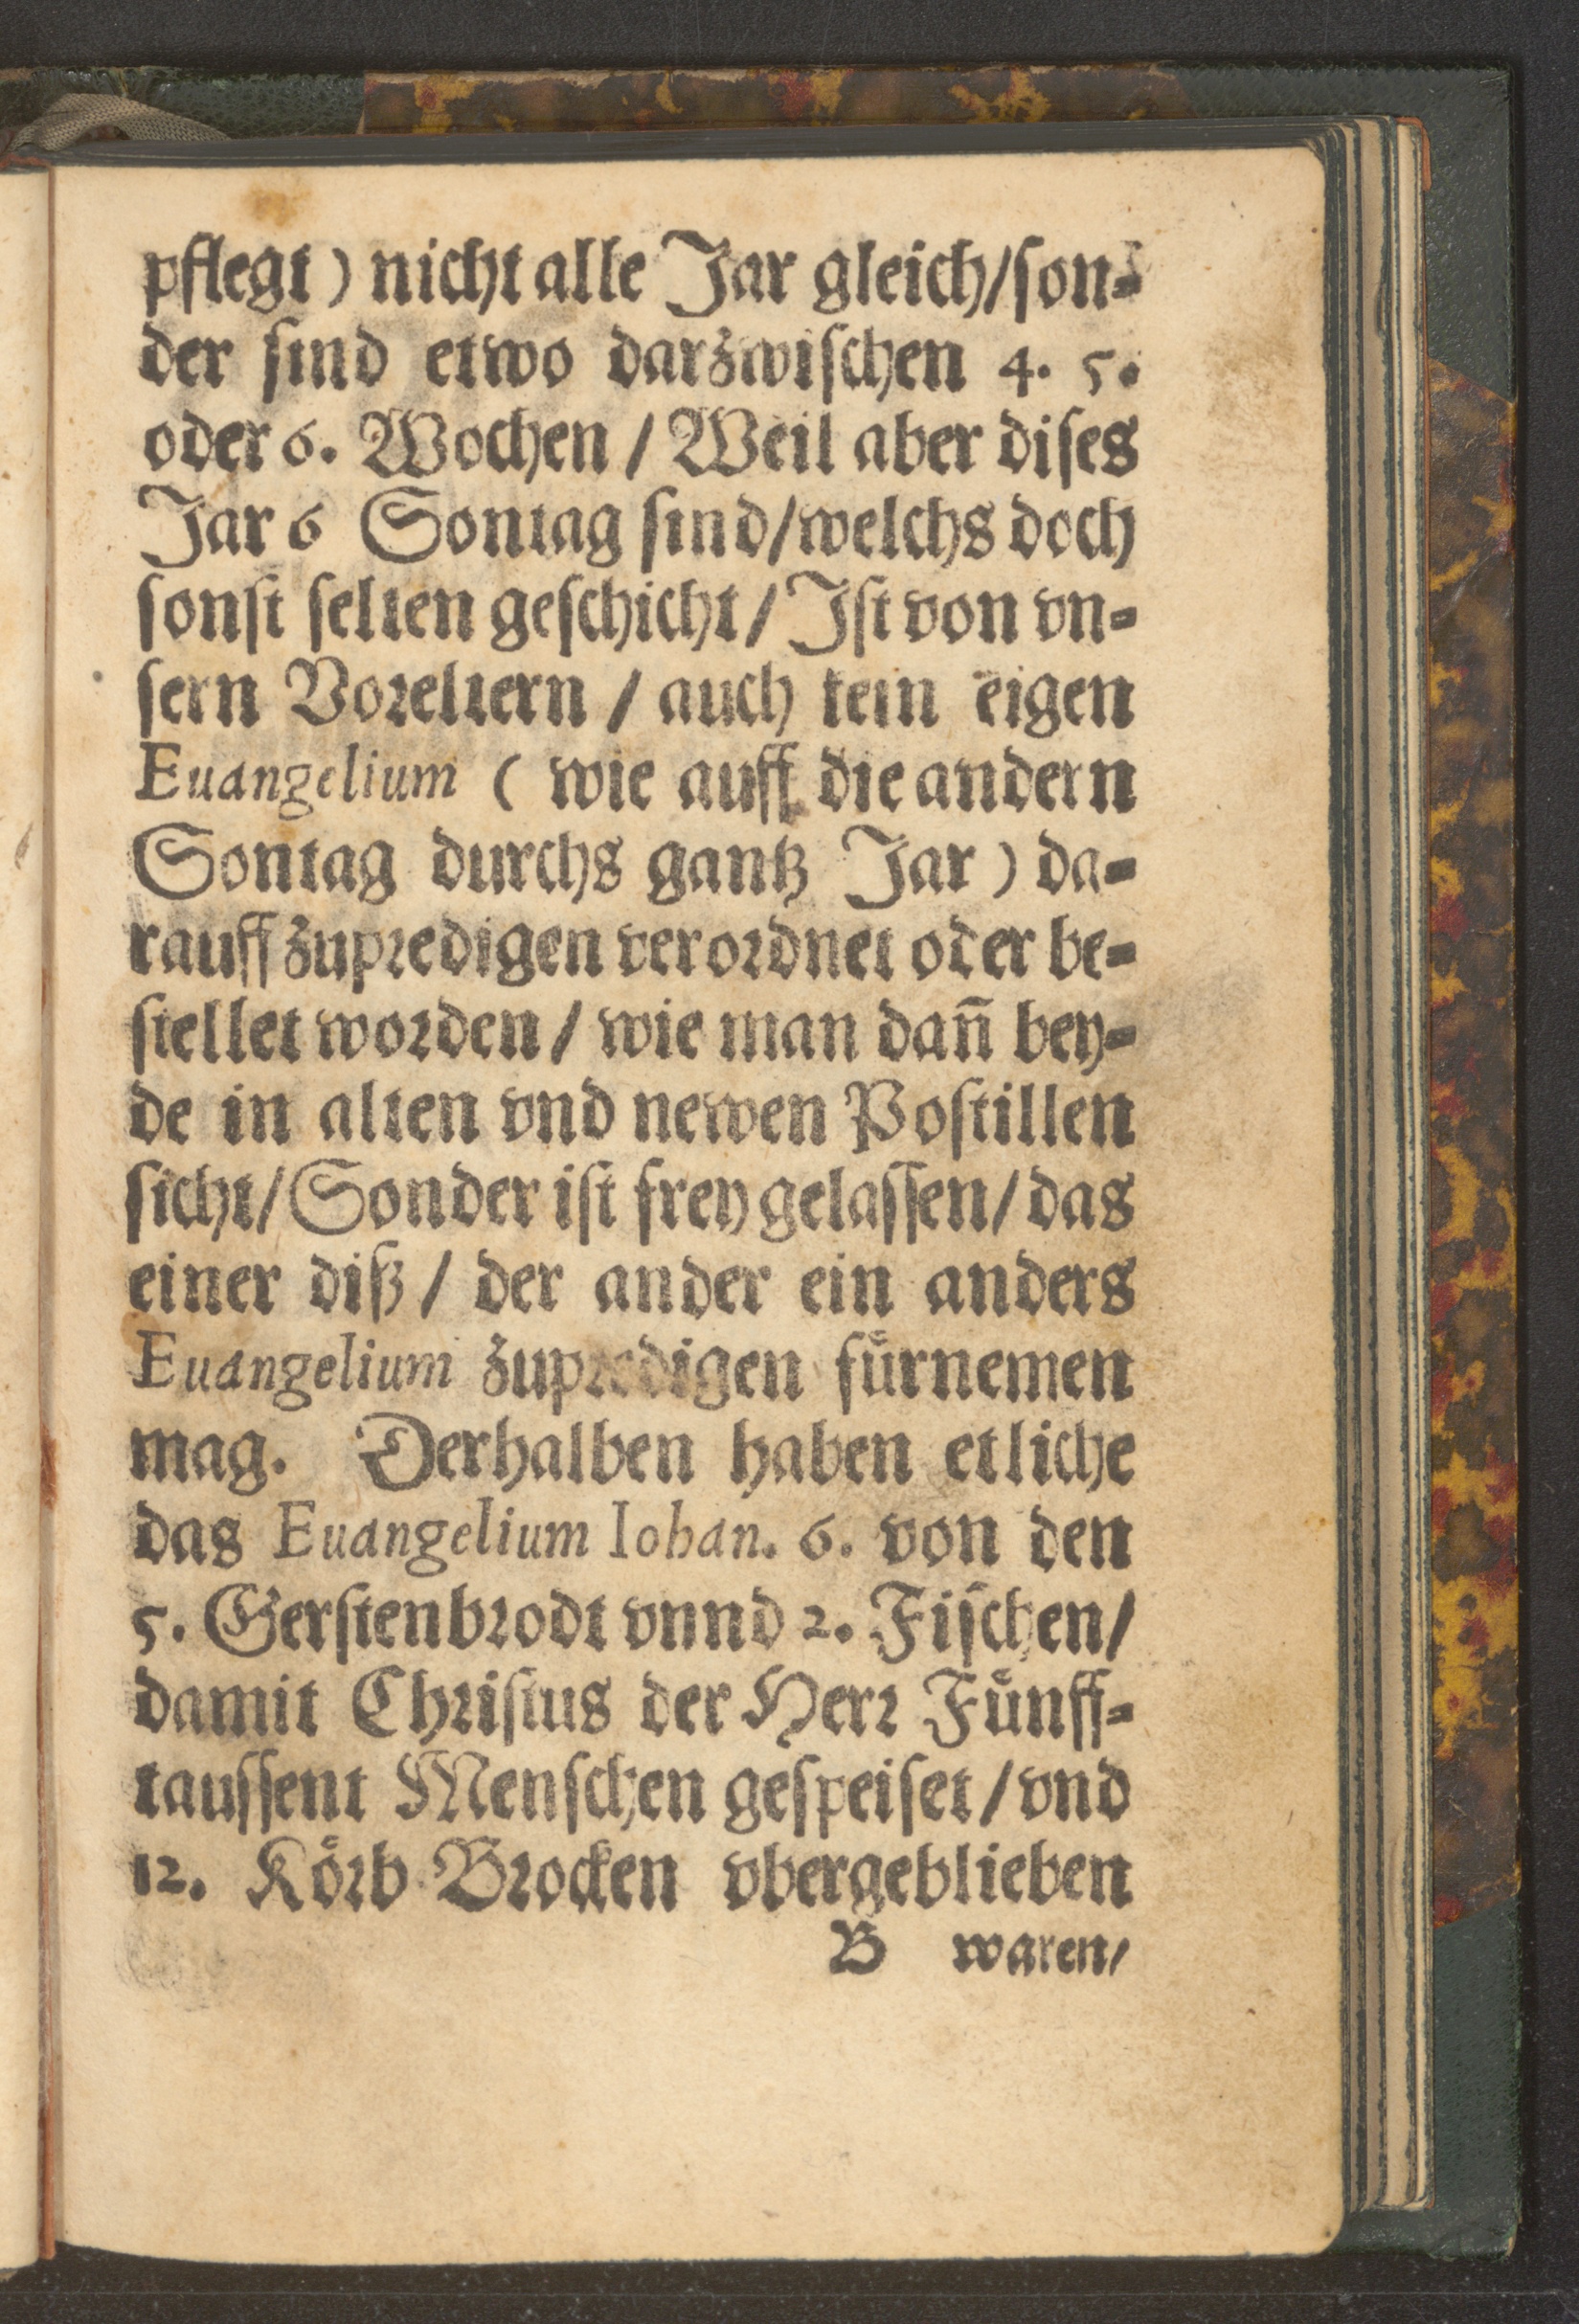 pflegt) nicht alle Jar gleich/son-
der sind etwo darzwischen 4. 5.
oder 6. Wochen / Weil aber dises
Jar 6 Sontag sind/welchs doch
sonst selten geschicht/ Ist von vn-
sern Voreltern / auch kein eigen
Euangelium ( wie auff die andern
Sontag durchs gantz Jar) da-
rauff zupredigen verordnet oder be-
stellet worden/ wie man dañ bey-
de in alten vnd newen Postillen
sicht/Sonder ist frey gelassen/das
einer diß / der ander ein anders
Euangelium zupredigen fuͤrnemen
mag. Derhalben haben etliche
das Euangelium Iohan. 6. von den
5. Gerstenbrodt vnnd 2. Fischen/
damit Christus der Herr Fuͤnff-
taussent Menschen gespeiset/vnd
12. Koͤrb Brocken vbergeblieben
B waren/